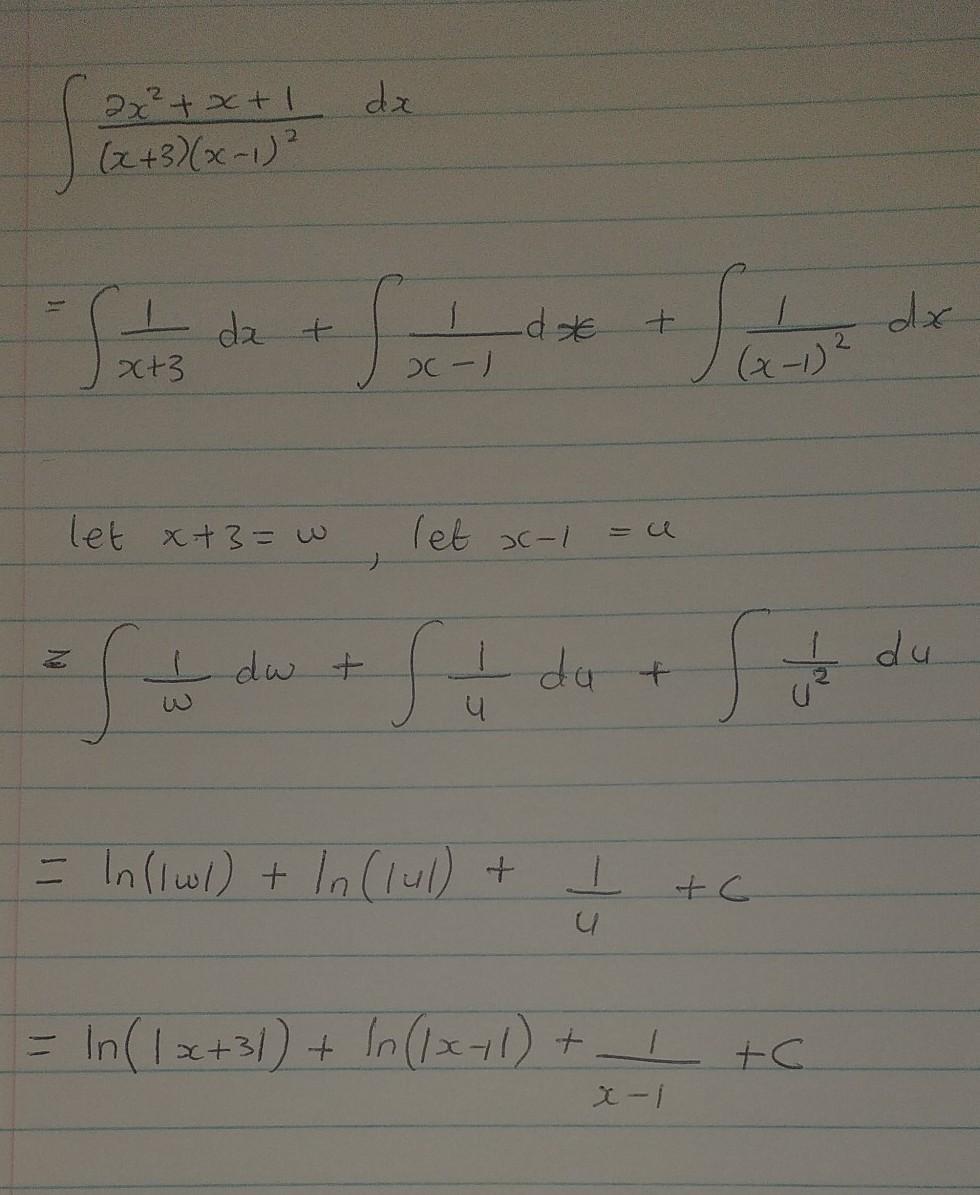 ∫ (2x² + x + 1)/((x+3)(x-1)²) dx
= ∫ 1/(x+3) dx + ∫ 1/(x-1) dx + ∫ 1/(x-1)² dx
let x+3 = w , let x-1 = u
= ∫ 1/w dw + ∫ 1/u du + ∫ 1/u² du
= ln(|w|) + ln(|u|) + 1/u + C
= ln(|x+3|) + ln(|x-1|) + 1/(x-1) + C